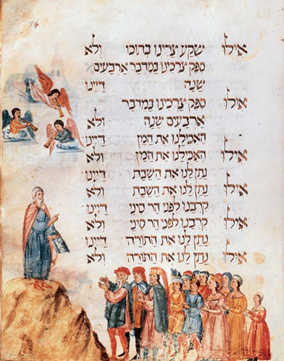 אילו שקע צרינו בתוכו ולא
ספק צרכינו במדבר ארבעים
שנה דיינו
אילו ספק צרכינו במדבר
ארבעים שנה ולא
האכילנו את המן דיינו
אילו האכילנו את המן ולא
נתן לנו את השבת דיינו
אילו נתן לנו את השבת ולא
קרבנו לפני הר סיני דיינו
אילו קרבנו לפני הר סיני ולא
נתן לנו את התורה דיינו
אילו נתן לנו את התורה ולא